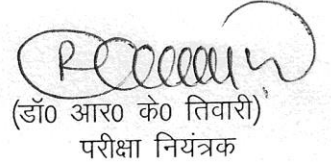 (डॉ0 आर0 के0 तिवारी)
परीक्षा नियंत्रक